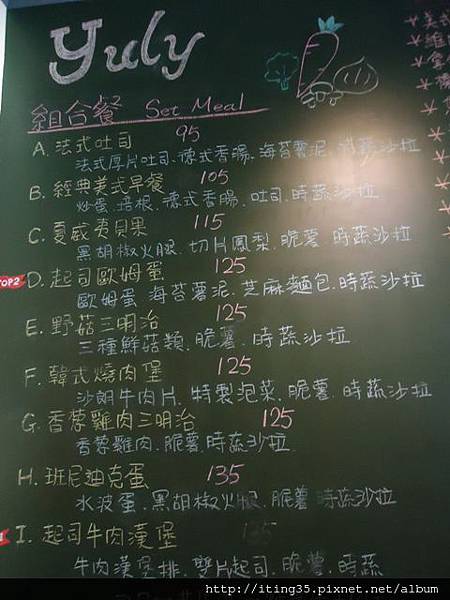 Yuly
組合餐 Set Meal
A. 法式吐司 95
法式厚片吐司.德式香腸.海苔薯泥.時蔬沙拉
B. 經典美式早餐 105
炒蛋.培根.德式香腸.吐司.時蔬沙拉
C. 夏威夷貝果 115
黑胡椒火腿.切片鳳梨.脆薯.時蔬沙拉
TOP2
D. 起司歐姆蛋 125
歐姆蛋.海苔薯泥.芝麻麵包.時蔬沙拉
E. 野菇三明治 125
三種鮮菇類.脆薯.時蔬沙拉
F. 韓式燒肉堡 125
沙朗牛肉片.特製泡菜.脆薯.時蔬沙拉
G. 香蒡雞肉三明治 125
香蒡雞肉.脆薯.時蔬沙拉
H. 班尼迪克蛋 135
水波蛋.黑胡椒火腿.脆薯.時蔬沙拉
I. 起司牛肉漢堡 135
牛肉漢堡排.雙片起司.脆薯.時蔬
http://iting35.pixnet.net/album